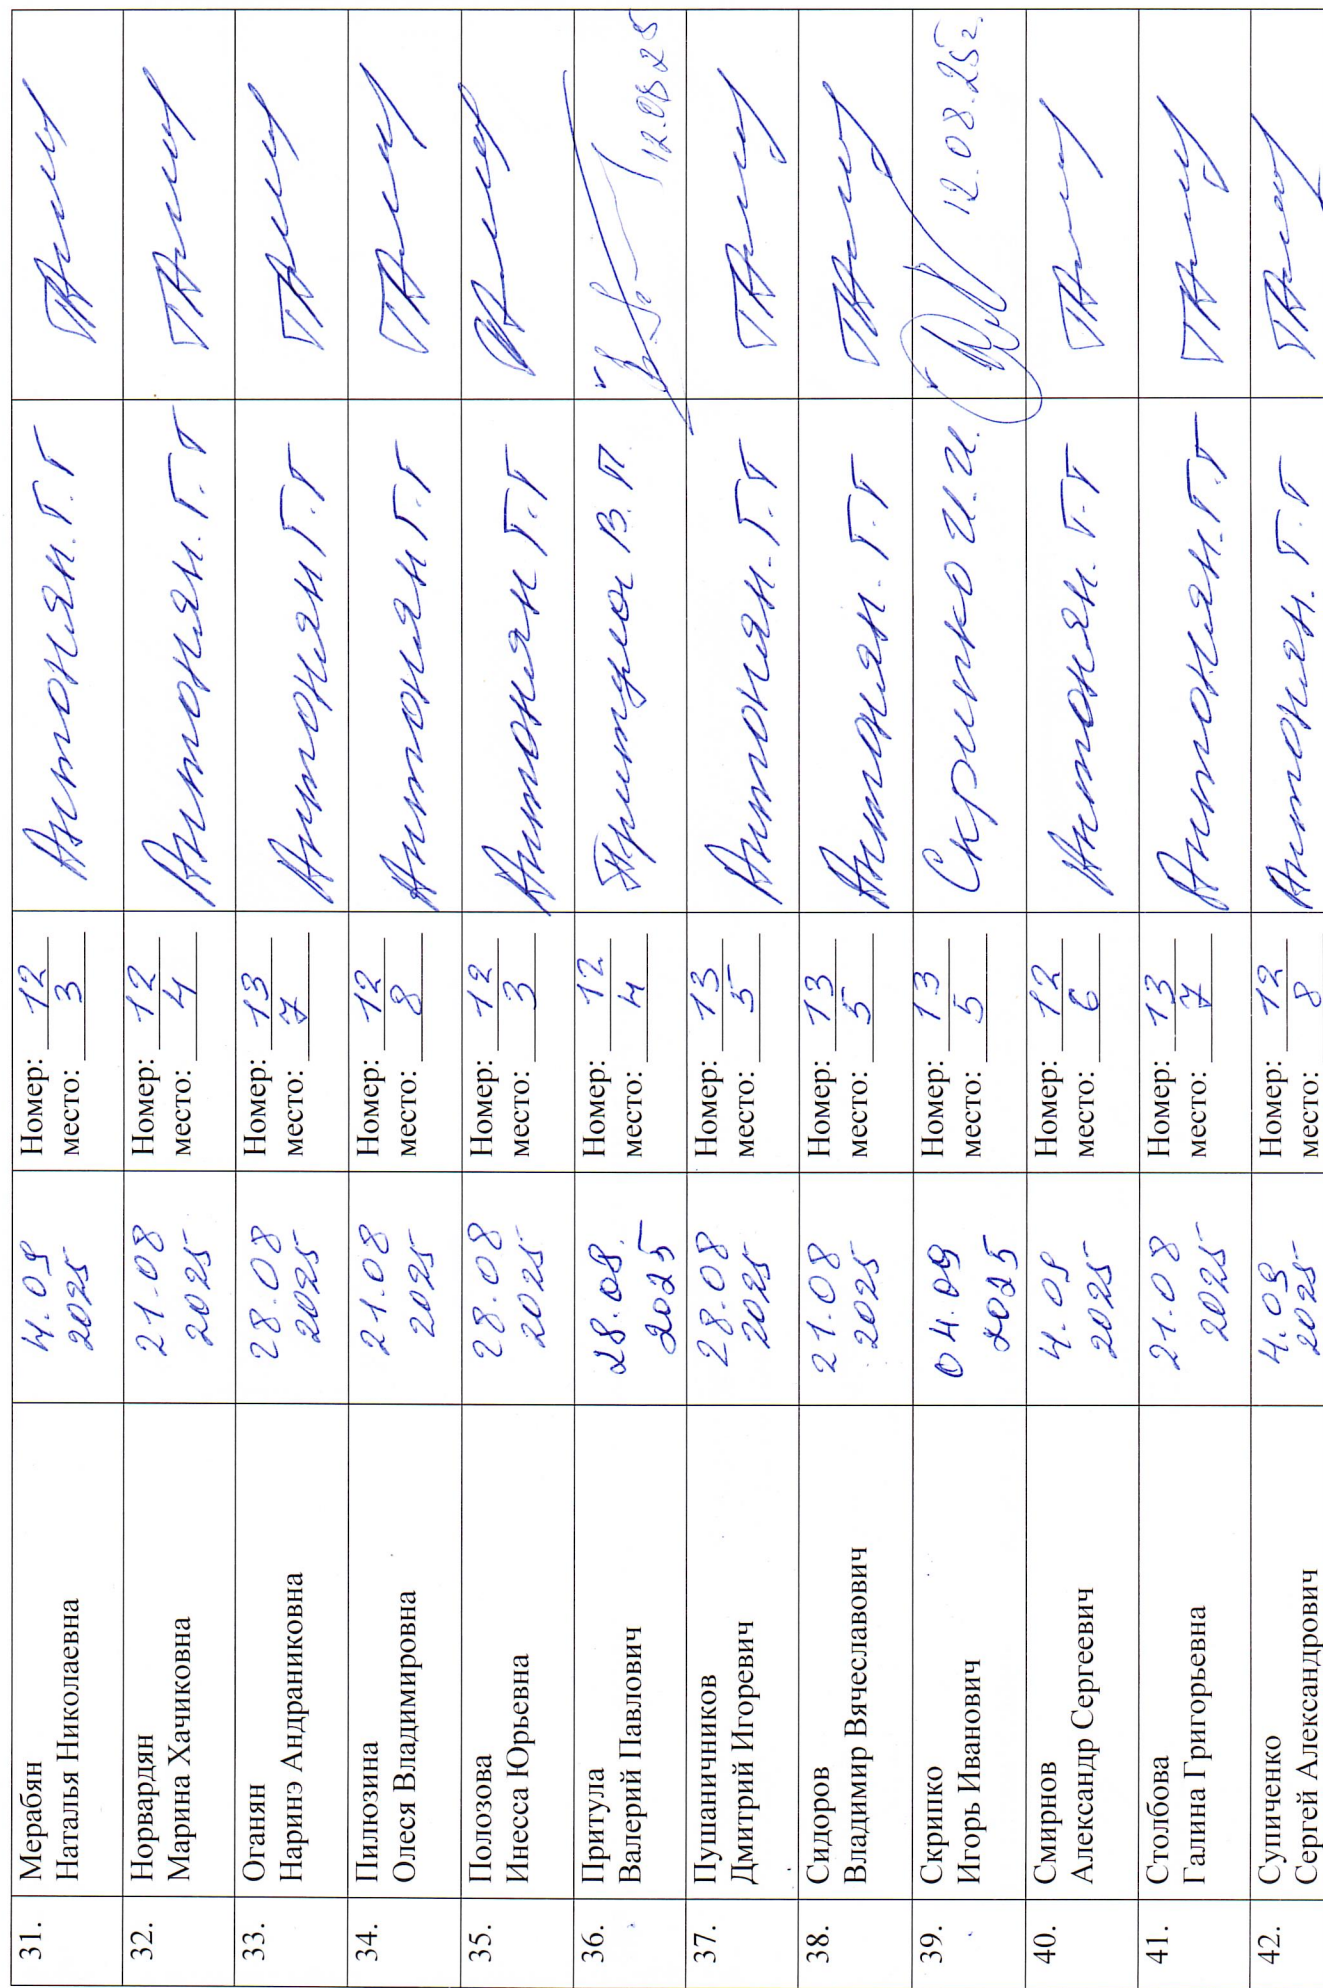 31.
Мерабян
Наталья Николаевна
4.09
2025
Номер: 12
место: 3
Антонян. Г. Г
32.
Норвардян
Марина Хачиковна
21.08
2025
Номер: 12
место: 4
Антонян. Г. Г
33.
Оганян
Наринэ Андраниковна
28.08
2025
Номер: 13
место: 7
Антонян Г. Г
34.
Пилюзина
Олеся Владимировна
21.08
2025
Номер: 12
место: 8
Антонян Г. Г
35.
Полозова
Инесса Юрьевна
28.08
2025
Номер: 12
место: 3
Антонян Г. Г
36.
Притула
Валерий Павлович
28.08.
2025
Номер: 12
место: 4
Притула В. П.
12.08 25
37.
Пушаничников
Дмитрий Игоревич
28.08
2025
Номер: 13
место: 5
Антонян. Г. Г
38.
Сидоров
Владимир Вячеславович
21.08
2025
Номер: 13
место: 5
Антонян. Г. Г
39.
Скрипко
Игорь Иванович
04.09
2025
Номер: 13
место: 5
Скрипко И. И.
12.08.25г.
40.
Смирнов
Александр Сергеевич
4.09
2025
Номер: 12
место: 6
Антонян. Г. Г
41.
Столбова
Галина Григорьевна
21.08
2025
Номер: 13
место: 7
Антонян. Г. Г
42.
Супиченко
Сергей Александрович
4.09
2025
Номер: 12
место: 8
Антонян. Г. Г